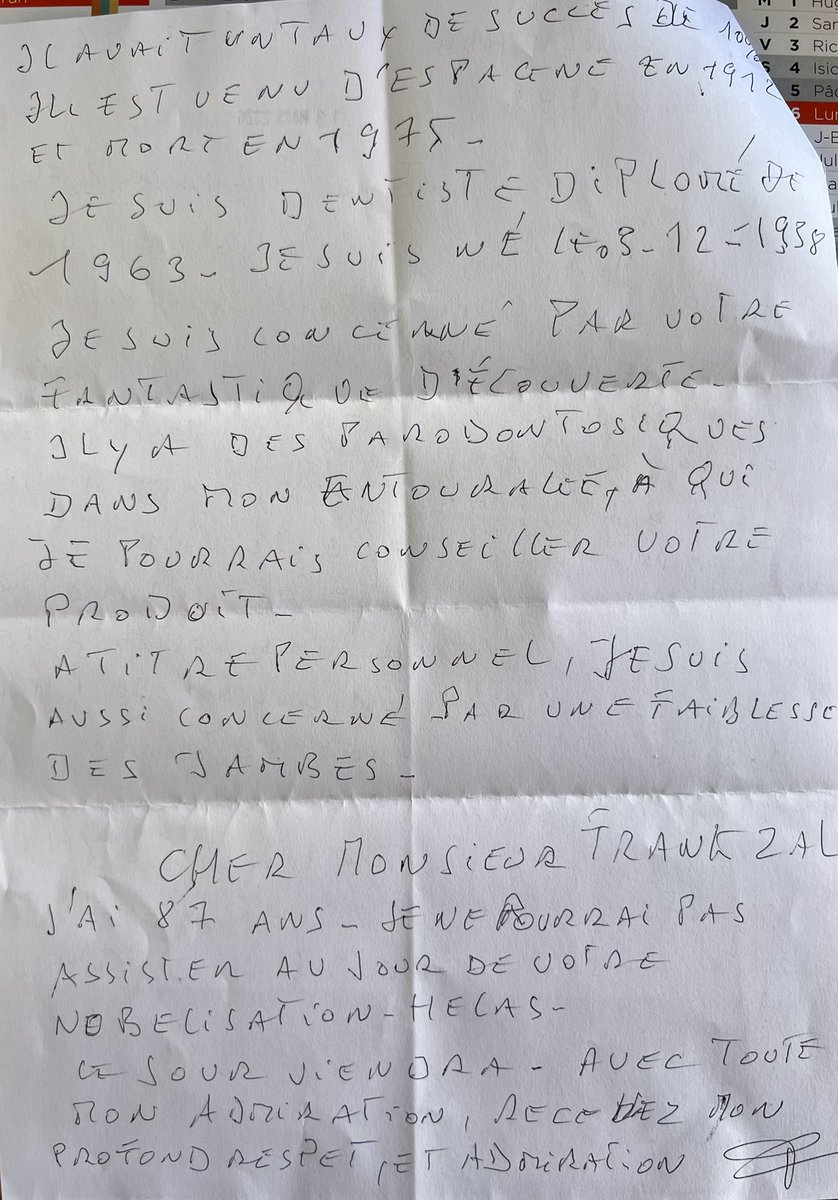 M 1 Hug
J 2 San
V 3 Ric
S 4 Isid
5 Pâq
6 Lun
J-B
Jul
IL AVAIT UN TAUX DE SUCCÈS DE 100%
IL EST VENU D'ESPAGNE EN 1912
ET MORT EN 1975-
JE SUIS DENTISTE DIPLOMÉ DE
1963- JE SUIS NÉ LE 03-12-1938
JE SUIS CONCERNÉ PAR VOTRE
FANTASTIQUE DÉCOUVERTE-
IL Y A DES PARODONTOSIQUES
DANS MON ENTOURAGE, À QUI
JE POURRAIS CONSEILLER VOTRE
PRODUIT-
A TITRE PERSONNEL, JE SUIS
AUSSI CONCERNÉ PAR UNE FAIBLESSE
DES JAMBES-
CHER MONSIEUR FRANK ZAL
J'AI 87 ANS- JE NE POURRAI PAS
ASSISTER AU JOUR DE VOTRE
NOBELISATION-HELAS-
CE JOUR VIENDRA- AVEC TOUTE
MON ADMIRATION, RECEVEZ MON
PROFOND RESPET, ET ADMIRATION